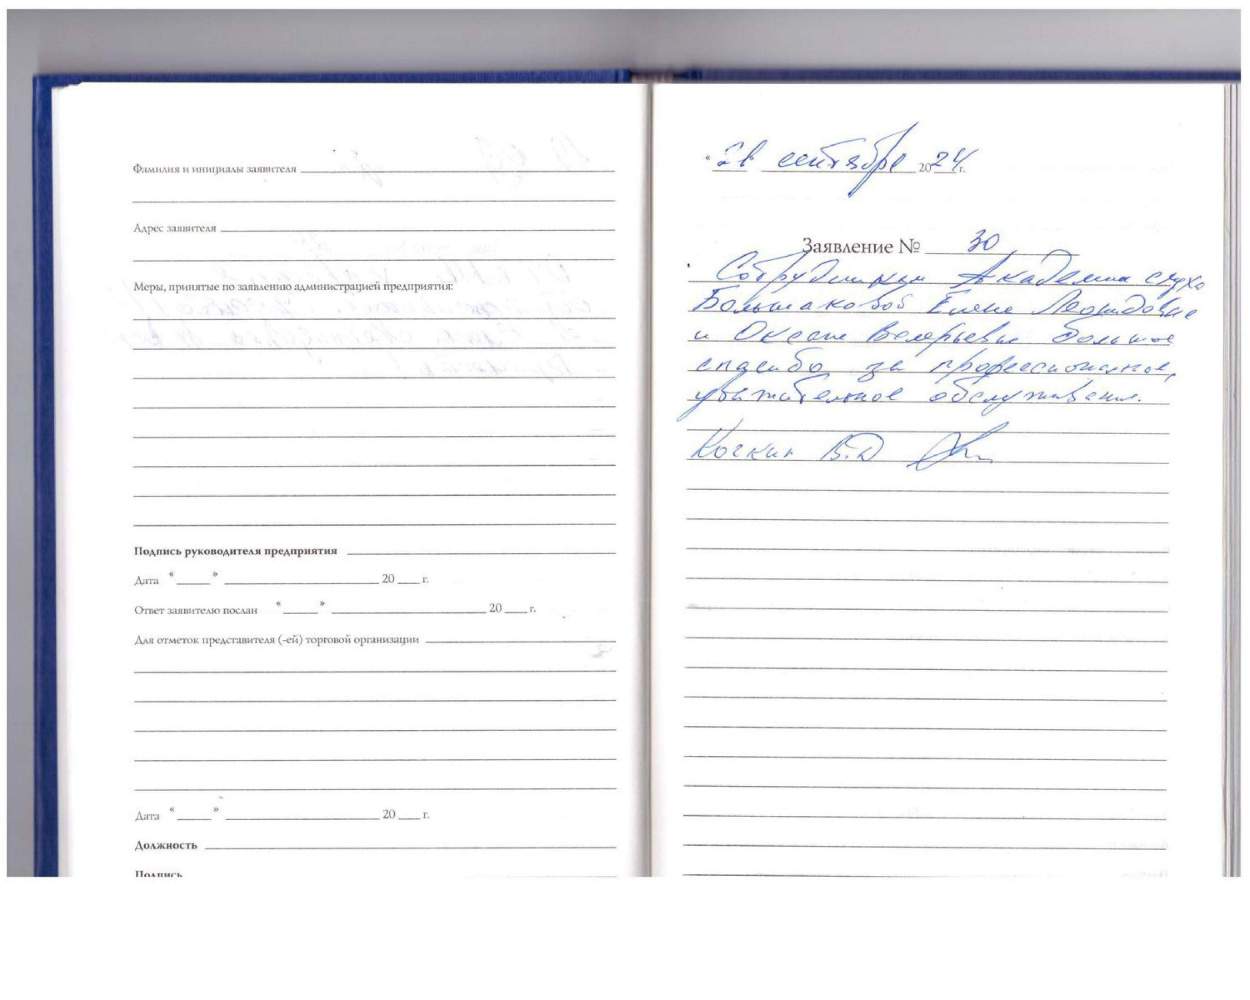 Фамилия и инициалы заявителя
Адрес заявителя
Меры, принятые по заявлению администрацией предприятия:
Подпись руководителя предприятия
Дата " " 20 г.
Ответ заявителю послан " " 20 г.
Для отметок представителя (-ей) торговой организации
Дата " " 20 г.
Должность
Подпись
сентября 2024 г.
Заявление № 30
Академии слуха
Большаковой Елене Леонидовне
и Оксане Валерьевне большое
спасибо за профессиональное,
уважительное обслуживание.
Кочкин В.Д